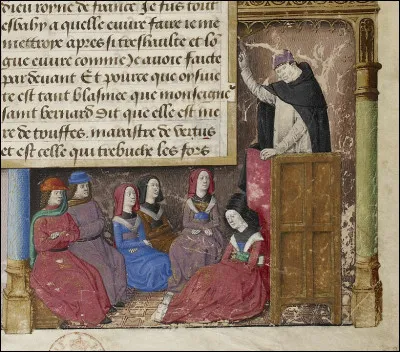 dieu royne de france Je fus tout
esbahy a quelle euure faire ie me
mettroye apres si treshaulte et lo
gue euure comme Je auoie faicte
par deuant Et pource que oysiue
te est tant blasmee que monseigne
saint bernard dit que elle est me
re de truffes, marastre de vertus
et est celle qui trebuche les fors